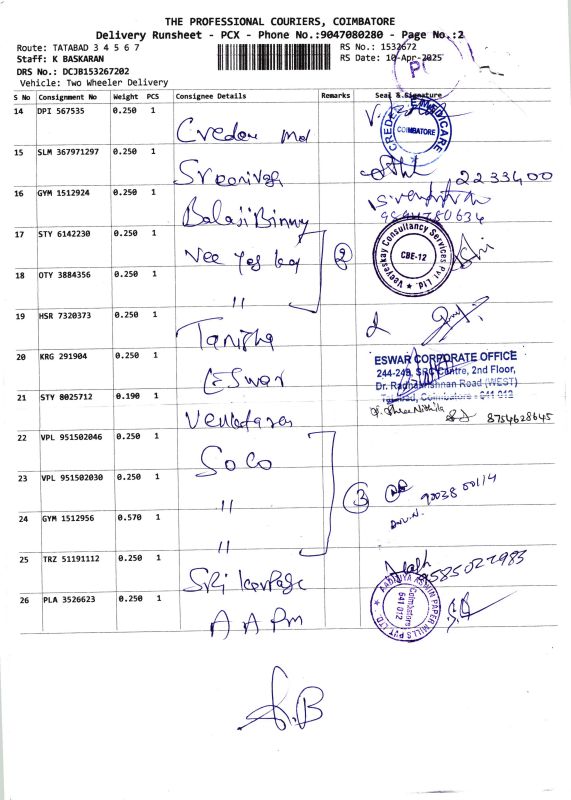 THE PROFESSIONAL COURIERS, COIMBATORE
Delivery Runsheet - PCX - Phone No.:9047080280 - Page No.:2
Route: TATABAD 3 4 5 6 7 RS No.: 1532672
Staff: K BASKARAN RS Date: 10-Apr-2025
DRS No.: DCJB153267202
Vehicle: Two Wheeler Delivery
S No Consignment No Weight PCS Consignee Details Remarks Seal & Signature
14 DPI 567535 0.250 1 Credou Md
CREDE MEDICARE COIMBATORE
15 SLM 367971297 0.250 1 Sreenivsh 2233400
16 GYM 1512924 0.250 1 Balaji Binny 9894780634
17 STY 6142230 0.250 1 Vee yes kay 2
Veeyeskay Consultancy Services Pvt. Ltd. CBE-12
18 OTY 3884356 0.250 1 "
19 HSR 7320373 0.250 1 Tanisha
20 KRG 291904 0.250 1 Eswar
ESWAR CORPORATE OFFICE
244-248, SRC Centre, 2nd Floor,
Dr. Radhakrishnan Road (WEST)
Tatabad, Coimbatore - 641 012
21 STY 8025712 0.190 1 Venkatares 8754628645
22 VPL 951502046 0.250 1 SoCo
23 VPL 951502030 0.250 1 " 3 90038 00114
24 GYM 1512956 0.570 1 "
25 TRZ 51191112 0.250 1 Sri karpaga 9585027983
26 PLA 3526623 0.250 1 A A Pm
AADHAVA ASHWIN PAPER MILLS PVT LTD. Coimbatore 641 012
S.B